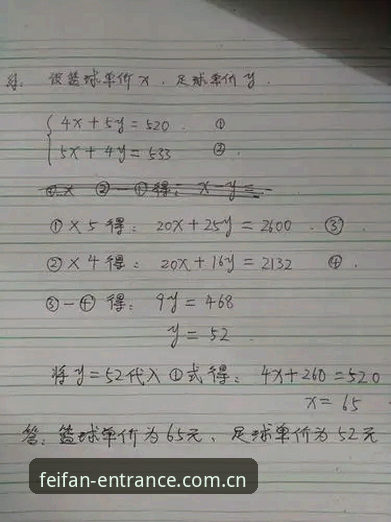 解: 设篮球单价x, 足球单价y.
4x+5y=520. ①
5x+4y=533 ②
②-①得: x-y=
①×5得: 20x+25y=2600. ③
②×4得: 20x+16y=2132 ④.
③-④得: 9y=468
y=52.
将y=52代入①式得: 4x+260=520
x=65
答: 篮球单价为65元, 足球单价为52元
feifan-entrance.com.cn